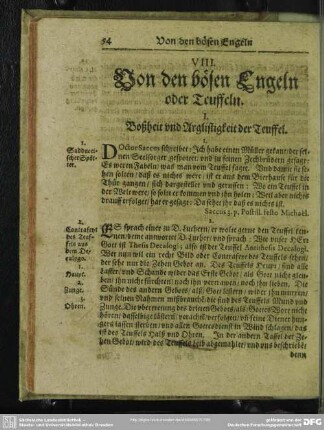 54 Von den bösen Engeln
VIII.
Von den bösen Engeln
oder Teuffeln.
I.
Boßheit vnd Arglistigkeit der Teuffel.
1.
1.
Sadducei-
scher Spöt-
ter.
DOctor Sarcer schreibet: Ich habe einen Müller gekant, der sei-
nen Seelsorger gespottet, vnd in seinen Zechbrüdern gesagt:
Es weren Fabeln, was man vom Teuffel sagte. Vnd damit sie se-
hen solten, daß es nichts were, ist er aus dem Bierhause für die
Thür gangen, sich dargestellet vnd geruffen: Wo ein Teuffel in
der Welt were, so solte er kommen vnd ihn holen. Weil aber nichts
drauff erfolget, hat er gesagt: Da sehet ihr, daß es nichts ist.
Sarcerus p. Postill. festo Michael.
2.
2.
Contrafeyt
des Teuf-
fels aus
dem De-
calogo.
1.
Haupt.
2.
Zunge.
3.
Ohren.
ES sprach einer zu D. Luthern, er wolte gerne den Teuffel ken-
nen, deme antwortet D. Luther, vnd sprach: Wie vnser HErr
Gott ist Thesis Decalogi, also ist der Teuffel Antithesis Decalogi.
Wer nun wil ein recht Bild oder Contrafeyt des Teuffels sehen,
der sehe nur die Zehen Gebot an. Des Teuffels Haupt sind alle
Laster vnd Sünde wider das Erste Gebot, als Gott nicht gleu-
ben, ihn nicht fürchten, noch ihn ehren, noch ihn lieben. Die
Sünde des andern Gebots, als Gott lästern,
vnd seinen Nahmen mißbrauchen, sind des Teuffels Mund vnd
Zunge. Die vbertretung des dritten Gebots, als Gottes Wort nicht
hören, dasselbige lästern, verachten, verfolgen, vnd seine Diener hun-
gers lassen sterben, vnd allen Gottesdienst in Wind schlagen, das
ist des Teuffels Halß vnd Ohren. In der andern Taffel der Ze-
hen Gebot, wird des Teuffels Leib abgemahlet, vnd vns beschriebe
denn